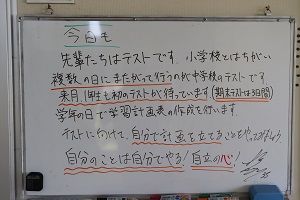 今日も
先輩たちはテストです。小学校とはちがい
複数の日にまたがって行うのが中学校のテストです。
来月、1年生も初のテストが待っています(期末テストは3日間)
学年の日で学習計画表の作成を行います
テストに向けて、自分で計画を立てることをやってみましょう
自分のことは自分でやる!自立の心!